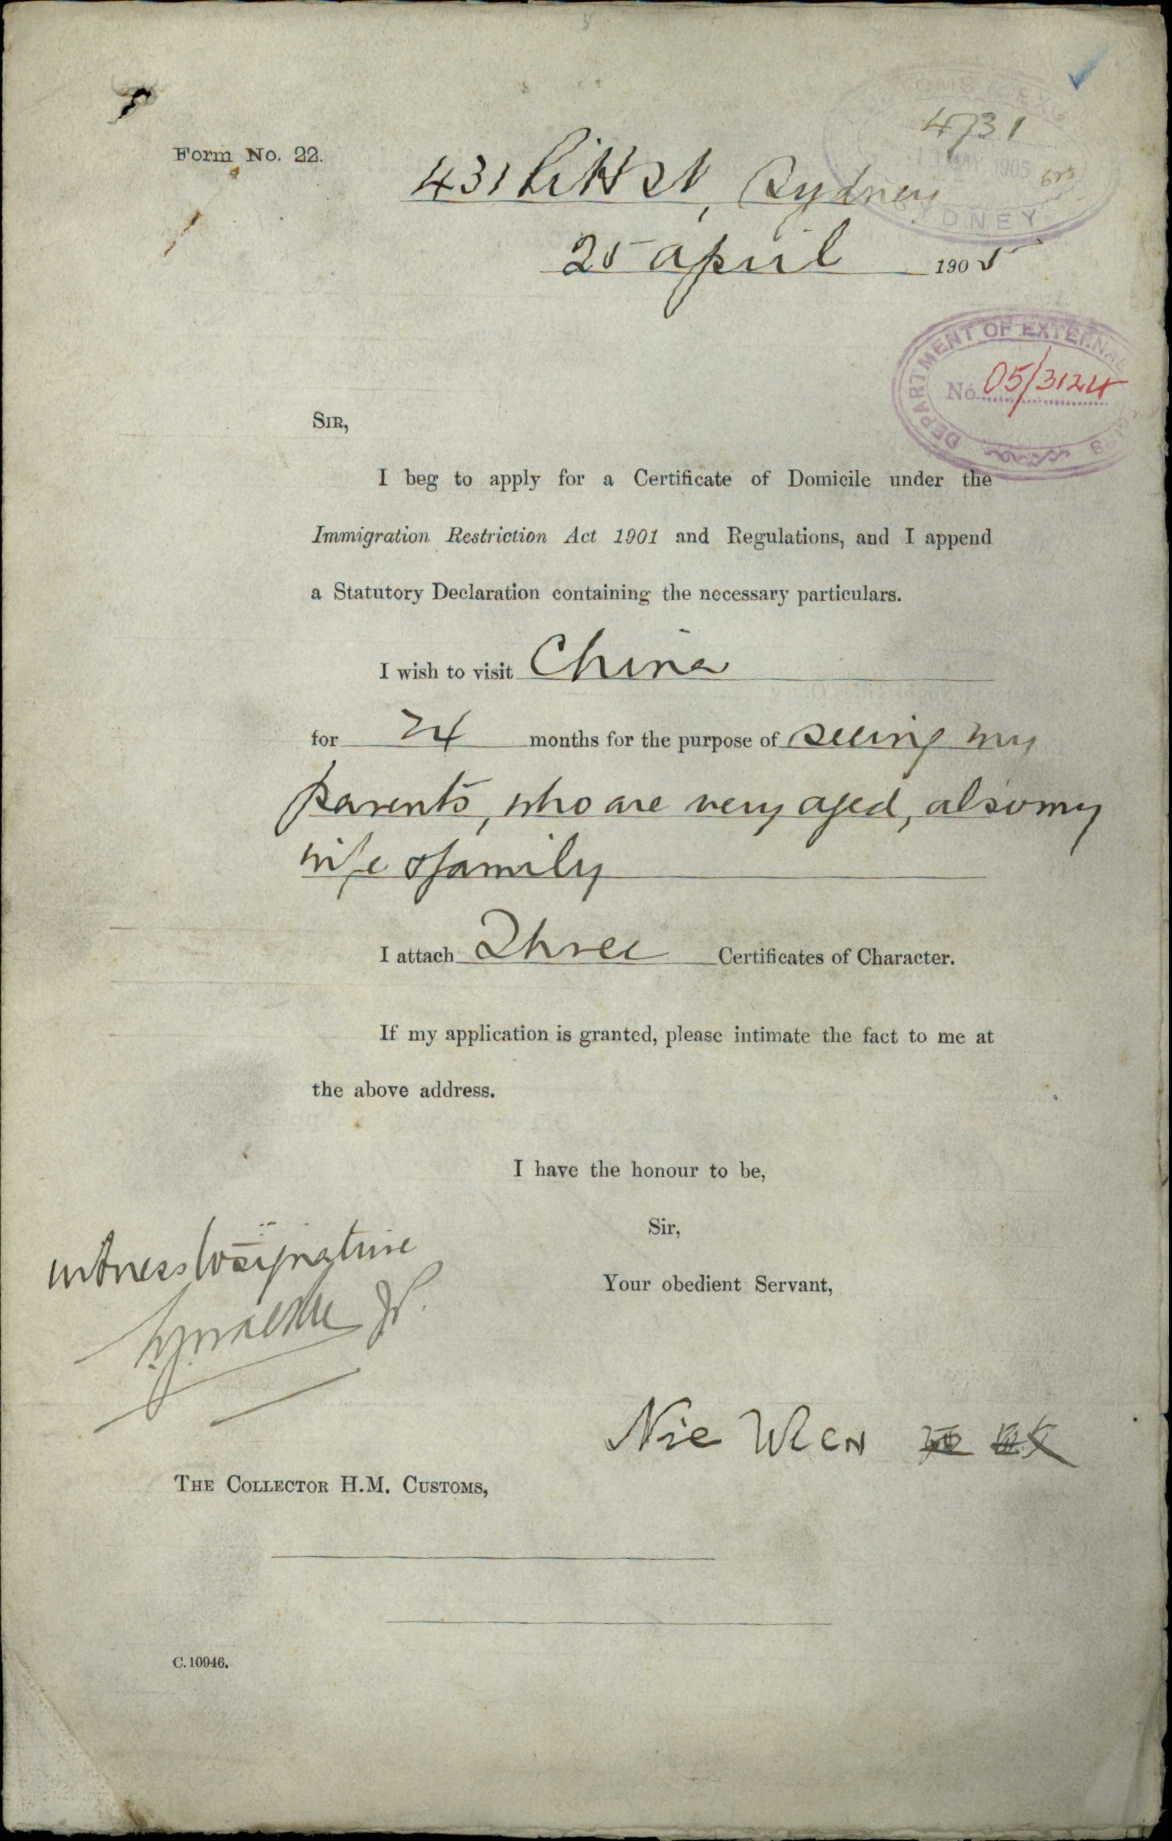 4731
Form No. 22.
431 Pitt St, Sydney
MAY 1905
SYDNEY
25 April 1905
DEPARTMENT OF EXTERNAL
No. 05/3124
SIR,
I beg to apply for a Certificate of Domicile under the
Immigration Restriction Act 1901 and Regulations, and I append
a Statutory Declaration containing the necessary particulars.
I wish to visit China
for 24 months for the purpose of seeing my
parents, who are very aged, also my
wife & family
I attach Three Certificates of Character.
If my application is granted, please intimate the fact to me at
the above address.
I have the honour to be,
Sir,
Your obedient Servant,
witness to signature
J.P.
Nie Wen
THE COLLECTOR H.M. CUSTOMS,
C.10946.